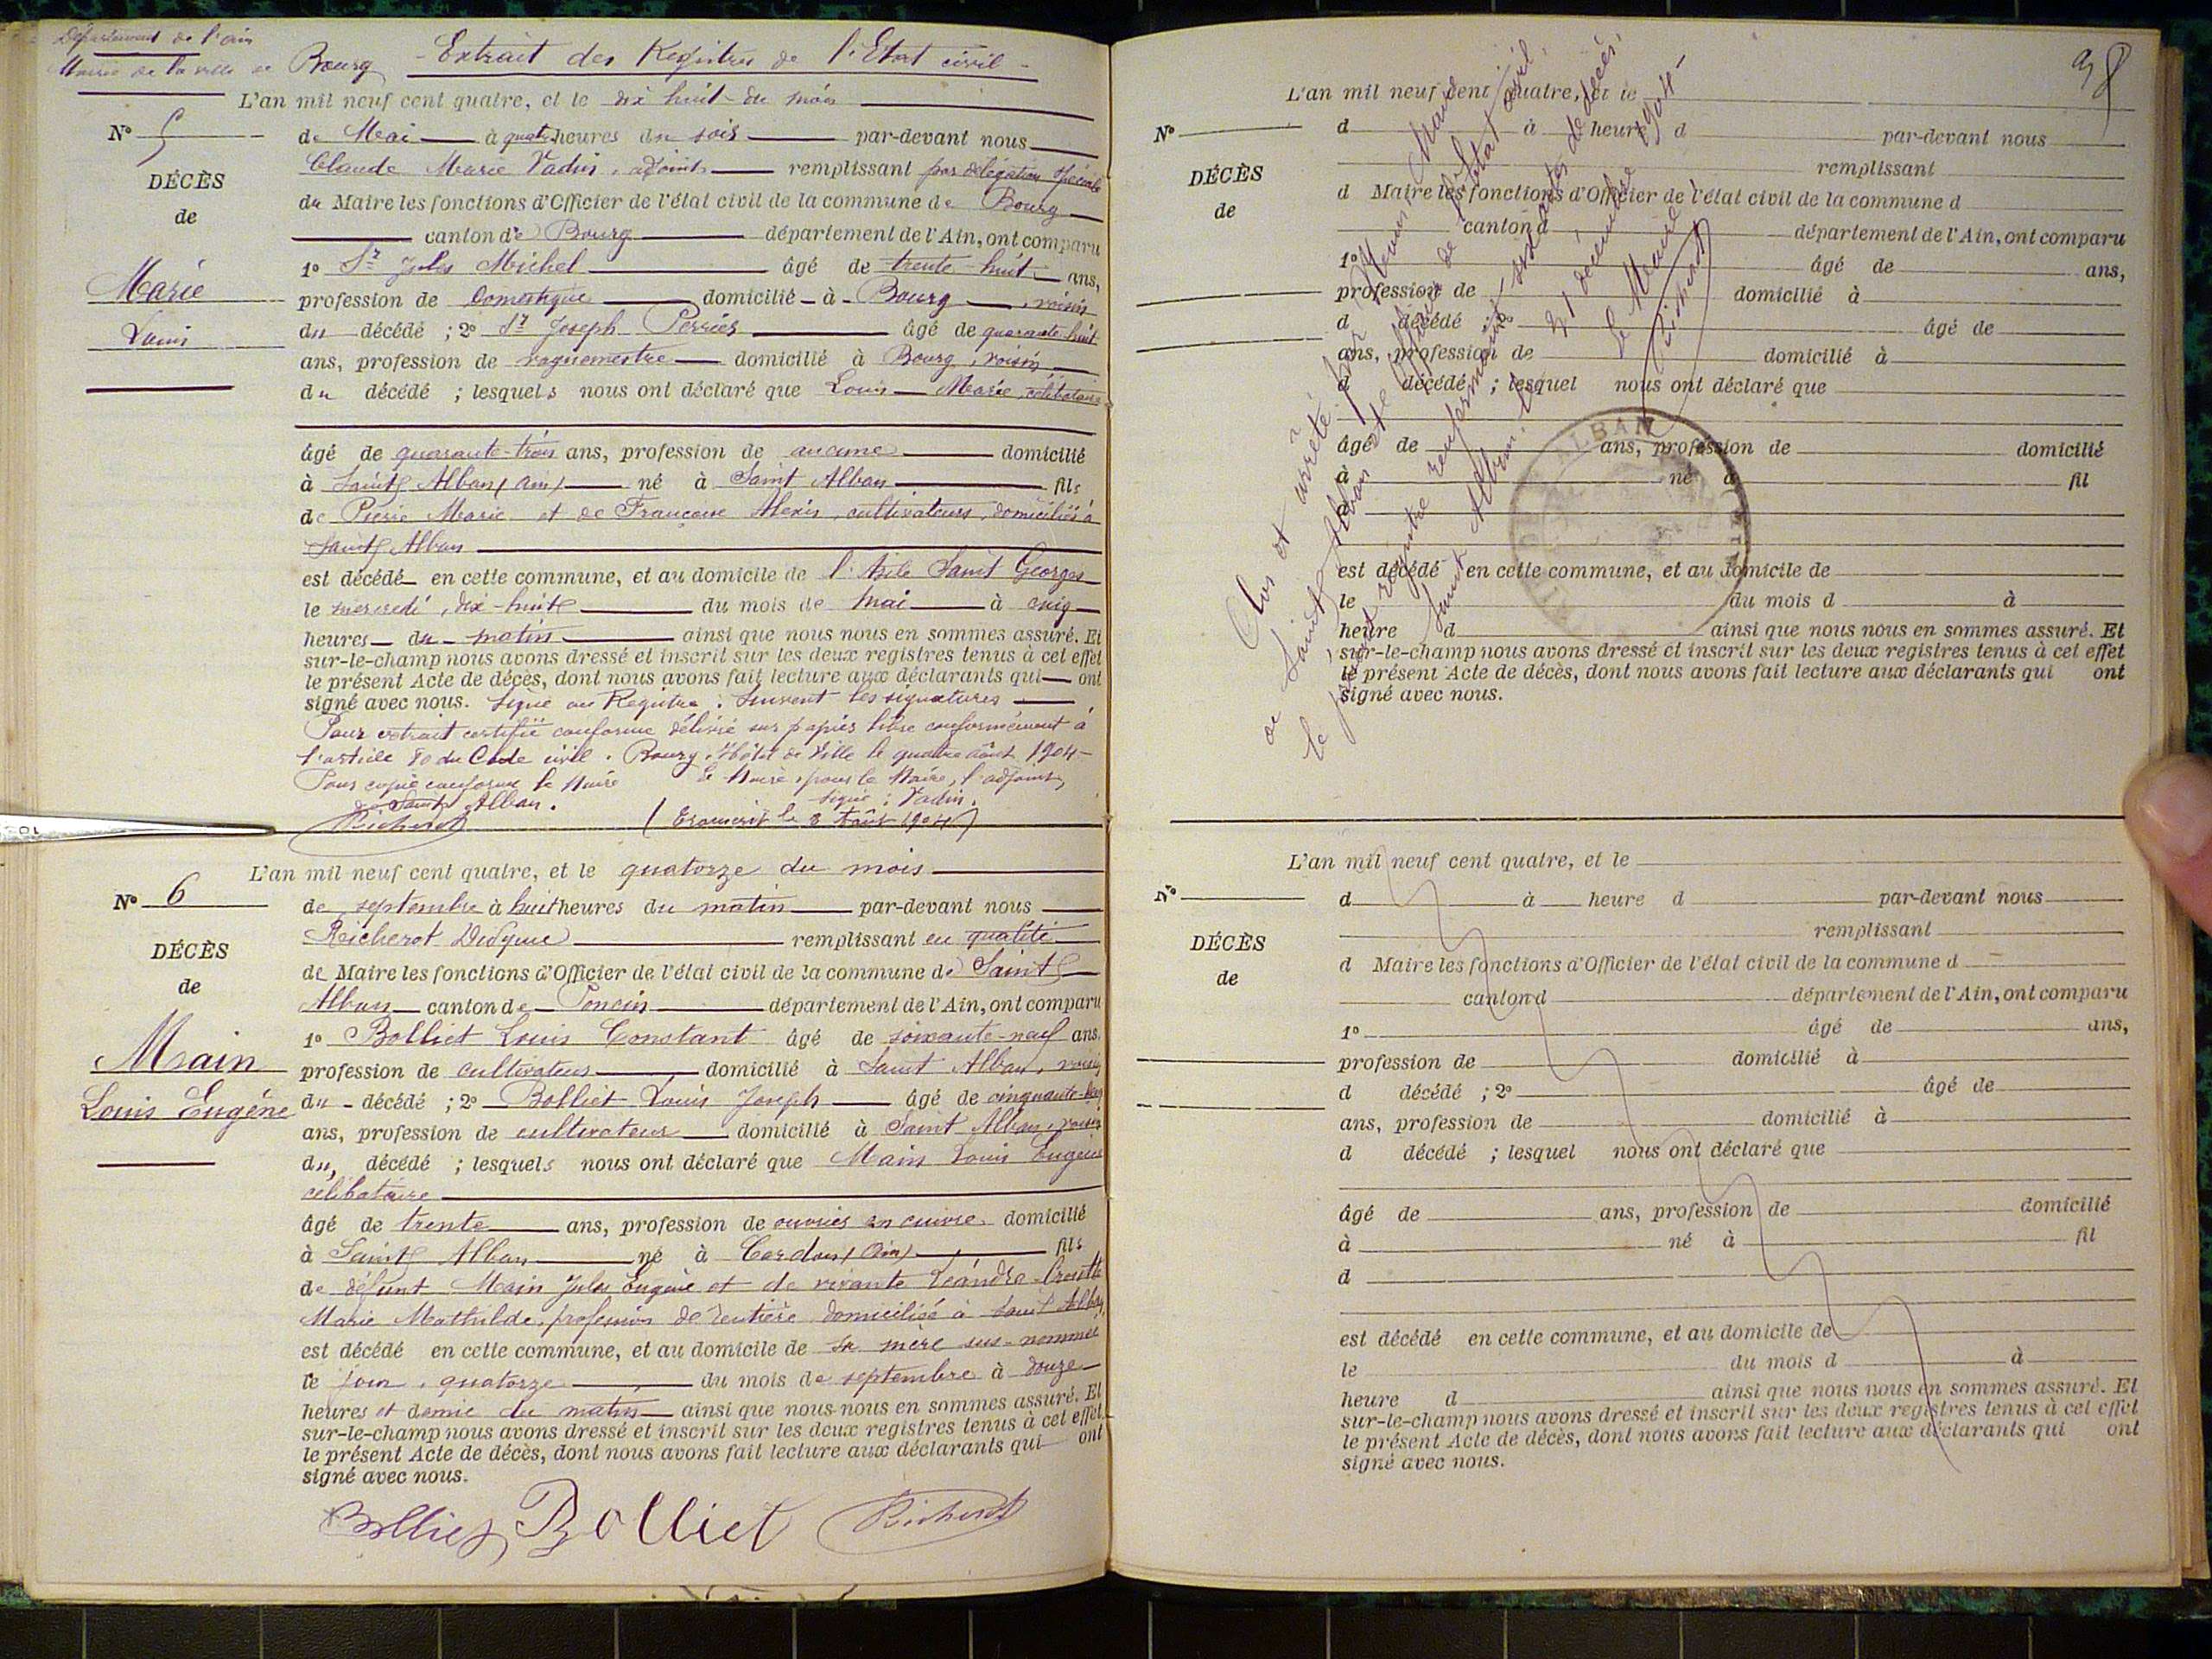 Département de l'Ain
Mairie de la ville de Bourg
Extrait des Registres de l'Etat civil
L'an mil neuf cent quatre, et le dix huit du mois
N° 5
de Mai à quatre heures du soir par-devant nous
Claude Marie Vadin, adjoint remplissant par délégation spéciale
DÉCÈS
du Maire les fonctions d'Officier de l'état civil de la commune de Bourg
de
canton de Bourg département de l'Ain, ont comparu
1° Sr Jules Michel âgé de trente-huit ans,
Marie
profession de Domestique domicilié à Bourg, voisin
Louis
du décédé ; 2° Sr Joseph Perrier âgé de quarante-huit
ans, profession de vaguemestre domicilié à Bourg, voisin
du décédé ; lesquels nous ont déclaré que Louis Marie, célibataire
âgé de quarante-trois ans, profession de aucune domicilié
à Saint Alban (Ain) né à Saint Alban fils
de Pierre Marie et de Françoise Alexis, cultivateurs, domiciliés à
Saint Alban
est décédé en cette commune, et au domicile de l'Asile Saint Georges
le mercredi, dix-huit du mois de mai à cinq
heures du matin ainsi que nous nous en sommes assuré. Et
sur-le-champ nous avons dressé et inscrit sur les deux registres tenus à cet effet
le présent Acte de décès, dont nous avons fait lecture aux déclarants qui ont
signé avec nous. Signé au Registre : Suivent les signatures
Pour extrait certifié conforme délivré sur papier libre conformément à
l'article 80 du Code civil. Bourg, Hôtel de Ville le quatre Août 1904
Pour copie conforme le Maire Le Maire, pour le Maire, l'adjoint,
de Saint Alban. signé : Vadin.
Richerot (Transcrit le 8 Août 1904)
L'an mil neuf cent quatre, et le quatorze du mois
N° 6
de septembre à huit heures du matin par-devant nous
Richerot remplissant en qualité
DÉCÈS
de Maire les fonctions d'Officier de l'état civil de la commune de Saint
de
Alban canton de Poncin département de l'Ain, ont comparu
1° Bolliet Louis Constant âgé de soixante-neuf ans,
Main
profession de cultivateur domicilié à Saint Alban, voisin
Louis Eugène
du décédé ; 2° Bolliet Louis Joseph âgé de
ans, profession de cultivateur domicilié à Saint Alban, voisin
du, décédé ; lesquels nous ont déclaré que Main Louis Eugène
célibataire
âgé de trente ans, profession de ouvrier en cuivre domicilié
à Saint Alban né à Cerdon (Ain) fils
de défunt Main Jules Eugène et de vivante Léandre
Marie Mathilde, profession de rentière domiciliée à Saint Alban,
est décédé en cette commune, et au domicile de sa mère sus-nommée
le jour, quatorze du mois de septembre à douze
heures et demie du matin ainsi que nous nous en sommes assuré. Et
sur-le-champ nous avons dressé et inscrit sur les deux registres tenus à cet effet
le présent Acte de décès, dont nous avons fait lecture aux déclarants qui ont
signé avec nous.
Bolliet Bolliet Richerot
L'an mil neuf cent quatre, et le
N°
d à heure d par-devant nous
remplissant
DÉCÈS
d Maire les fonctions d'Officier de l'état civil de la commune d
de
canton d département de l'Ain, ont comparu
1° âgé de ans,
profession de domicilié à
d décédé ; 2° âgé de
ans, profession de domicilié à
d décédé ; lesquel nous ont déclaré que
âgé de ans, profession de domicilié
à né à fil
d
est décédé en cette commune, et au domicile de
le du mois d à
heure d ainsi que nous nous en sommes assuré. Et
sur-le-champ nous avons dressé et inscrit sur les deux registres tenus à cet effet
le présent Acte de décès, dont nous avons fait lecture aux déclarants qui ont
signé avec nous.
Clos et arrêté par Nous, Maire
de Saint Alban et Officier de l'état civil,
le présent registre renfermant six actes de décès.
Saint Alban, le 31 décembre 1904
le Maire,
Richerot
ALBAN
L'an mil neuf cent quatre, et le
N°
d à heure d par-devant nous
remplissant
DÉCÈS
d Maire les fonctions d'Officier de l'état civil de la commune d
de
canton d département de l'Ain, ont comparu
1° âgé de ans,
profession de domicilié à
d décédé ; 2° âgé de
ans, profession de domicilié à
d décédé ; lesquel nous ont déclaré que
âgé de ans, profession de domicilié
à né à fil
d
est décédé en cette commune, et au domicile de
le du mois d à
heure d ainsi que nous nous en sommes assuré. Et
sur-le-champ nous avons dressé et inscrit sur les deux registres tenus à cet effet
le présent Acte de décès, dont nous avons fait lecture aux déclarants qui ont
signé avec nous.